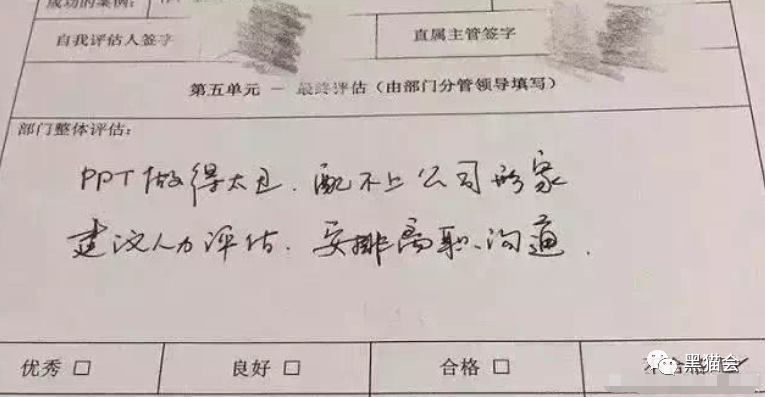 成功的案例：
自我评估人签字 直属主管签字
第五单元 － 最终评估（由部门分管领导填写）
部门整体评估：
PPT做得太丑、配不上公司形象
建议人力评估、安排离职沟通.
优秀 □ 良好 □ 合格 □ 不合格
黑猫会